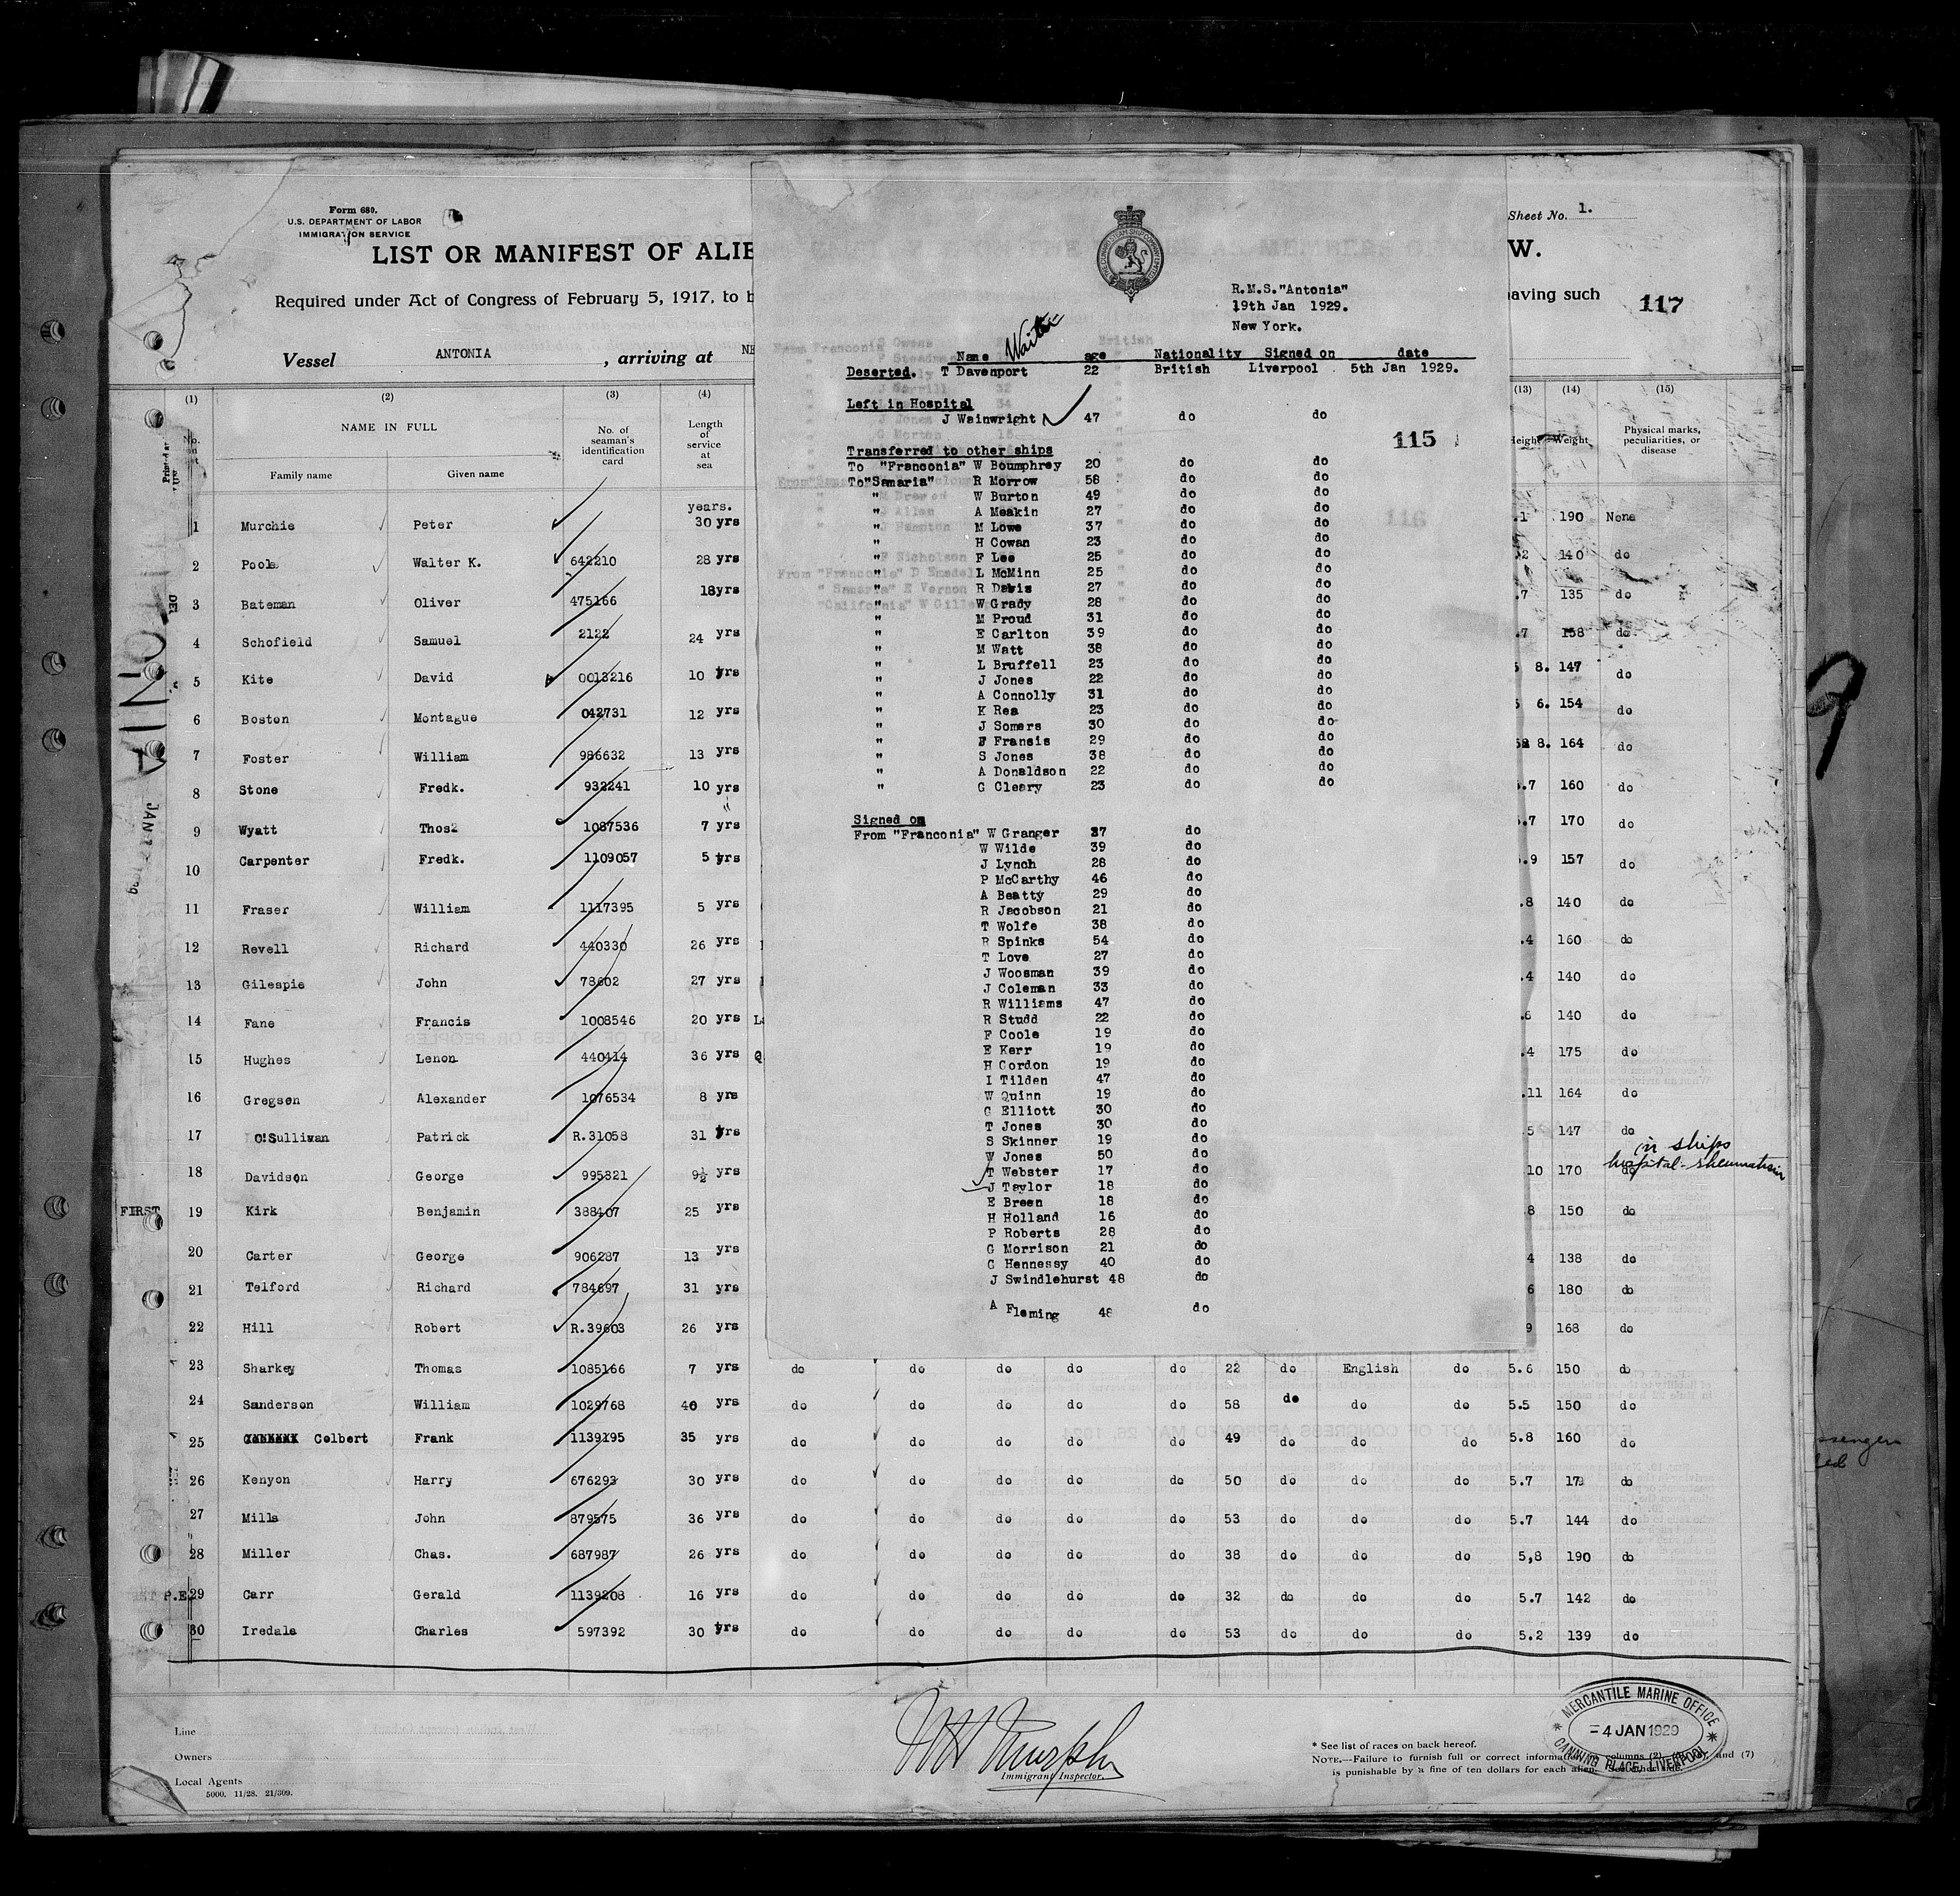 Form 680.
U.S. DEPARTMENT OF LABOR
IMMIGRATION SERVICE
LIST OR MANIFEST OF ALIE
Required under Act of Congress of February 5, 1917, to b
Vessel ANTONIA , arriving at NE
Sheet No. 1.
W.
aving such 117
(1) (2) (3) (4)
NAME IN FULL
Family name Given name
No. of seaman's identification card
Length of service at sea
years.
(13) (14) (15)
Weight
Physical marks, peculiarities, or disease
1 Murchie Peter 30 yrs
2 Poole Walter K. 642210 28 yrs
3 Bateman Oliver 475166 18yrs
4 Schofield Samuel 2122 24 yrs
5 Kite David 0013216 10 yrs
6 Boston Montague 042731 12 yrs
7 Foster William 986632 13 yrs
8 Stone Fredk. 932241 10 yrs
9 Wyatt Thos 1087536 7 yrs
10 Carpenter Fredk. 1109057 5 yrs
11 Fraser William 1117395 5 yrs
12 Revell Richard 440330 26 yrs
13 Gilespie John 78602 27 yrs
14 Fane Francis 1008546 20 yrs
15 Hughes Lenon 440414 36 yrs
16 Gregson Alexander 1076534 8 yrs
17 O'Sullivan Patrick R.31058 31 yrs
18 Davidson George 995821 9½ yrs
FIRST 19 Kirk Benjamin 388407 25 yrs
20 Carter George 906287 13 yrs
21 Telford Richard 784697 31 yrs
22 Hill Robert R.39603 26 yrs
23 Sharkey Thomas 1085166 7 yrs do do do do do 22 do English do 5.6 150 do
24 Sanderson William 1029768 40 yrs do do do do do 58 do do do 5.5 150 do
25 Colbert Frank 1139195 35 yrs do do do do do 49 do do do 5.8 160 do
26 Kenyon Harry 676293 30 yrs do do do do do 50 do do do 5.7 do
27 Mills John 879575 36 yrs do do do do do 53 do do do 5.7 144 do
28 Miller Chas. 687987 26 yrs do do do do do 38 do do do 5,8 190 do
P.E. 29 Carr Gerald 1139208 16 yrs do do do do do 32 do do do 5.7 142 do
30 Iredale Charles 597392 30 yrs do do do do do 53 do do do 5.2 139 do
.1 190 None
2 140 do
.7 135 do
.7 158 do
8. 147 do
6. 154 do
8. 164 do
.7 160 do
.7 170 do
.9 157 do
.8 140 do
.4 160 do
.4 140 do
.6 140 do
.4 175 do
.11 164 do
5 147 do
in ships
10 170 do hospital - rheumatism
8 150 do
4 138 do
6 180 do
9 168 do
R.M.S."Antonia"
19th Jan 1929.
New York.
Waiter
Name age Nationality Signed on date
Deserted. T Davenport 22 British Liverpool 5th Jan 1929.
Left in Hospital
J Wainwright 47 do do
115
Transferred to other ships
To "Franconia" W Boumphrey 20 do do
To"Samaria" R Morrow 58 do do
" W Burton 49 do do
" A Meakin 27 do do
" M Lowe 37 do do
" H Cowan 23 do do
" F Lee 25 do do
" L McMinn 25 do do
" R Davis 27 do do
" W Grady 28 do do
" M Proud 31 do do
" E Carlton 39 do do
" M Watt 38 do do
" L Bruffell 23 do do
" J Jones 22 do do
" A Connolly 31 do do
" K Rea 23 do do
" J Somers 30 do do
" F Francis 29 do do
" S Jones 38 do do
" A Donaldson 22 do do
" G Cleary 23 do do
Signed on
From "Franconia" W Granger 37 do
W Wilde 39 do
J Lynch 28 do
P McCarthy 46 do
A Beatty 29 do
R Jacobson 21 do
T Wolfe 38 do
R Spinks 54 do
T Love 27 do
J Woosman 39 do
J Coleman 33 do
R Williams 47 do
R Studd 22 do
F Coole 19 do
E Kerr 19 do
H Gordon 19 do
I Tilden 47 do
W Quinn 19 do
G Elliott 30 do
T Jones 30 do
S Skinner 19 do
W Jones 50 do
T Webster 17 do
J Taylor 18 do
E Breen 18 do
H Holland 16 do
P Roberts 28 do
G Morrison 21 do
C Hennessy 40 do
J Swindlehurst 48 do
A Fleming 48 do
Line
Owners
Local Agents
5000. 11/28. 21/309.
Immigrant Inspector.
* See list of races on back hereof.
NOTE.—Failure to furnish full or correct information columns (2), and (7)
is punishable by a fine of ten dollars for each alien. See other side.
MERCANTILE MARINE OFFICE
-4 JAN 1929
CANNING PLACE, LIVERPOOL
9